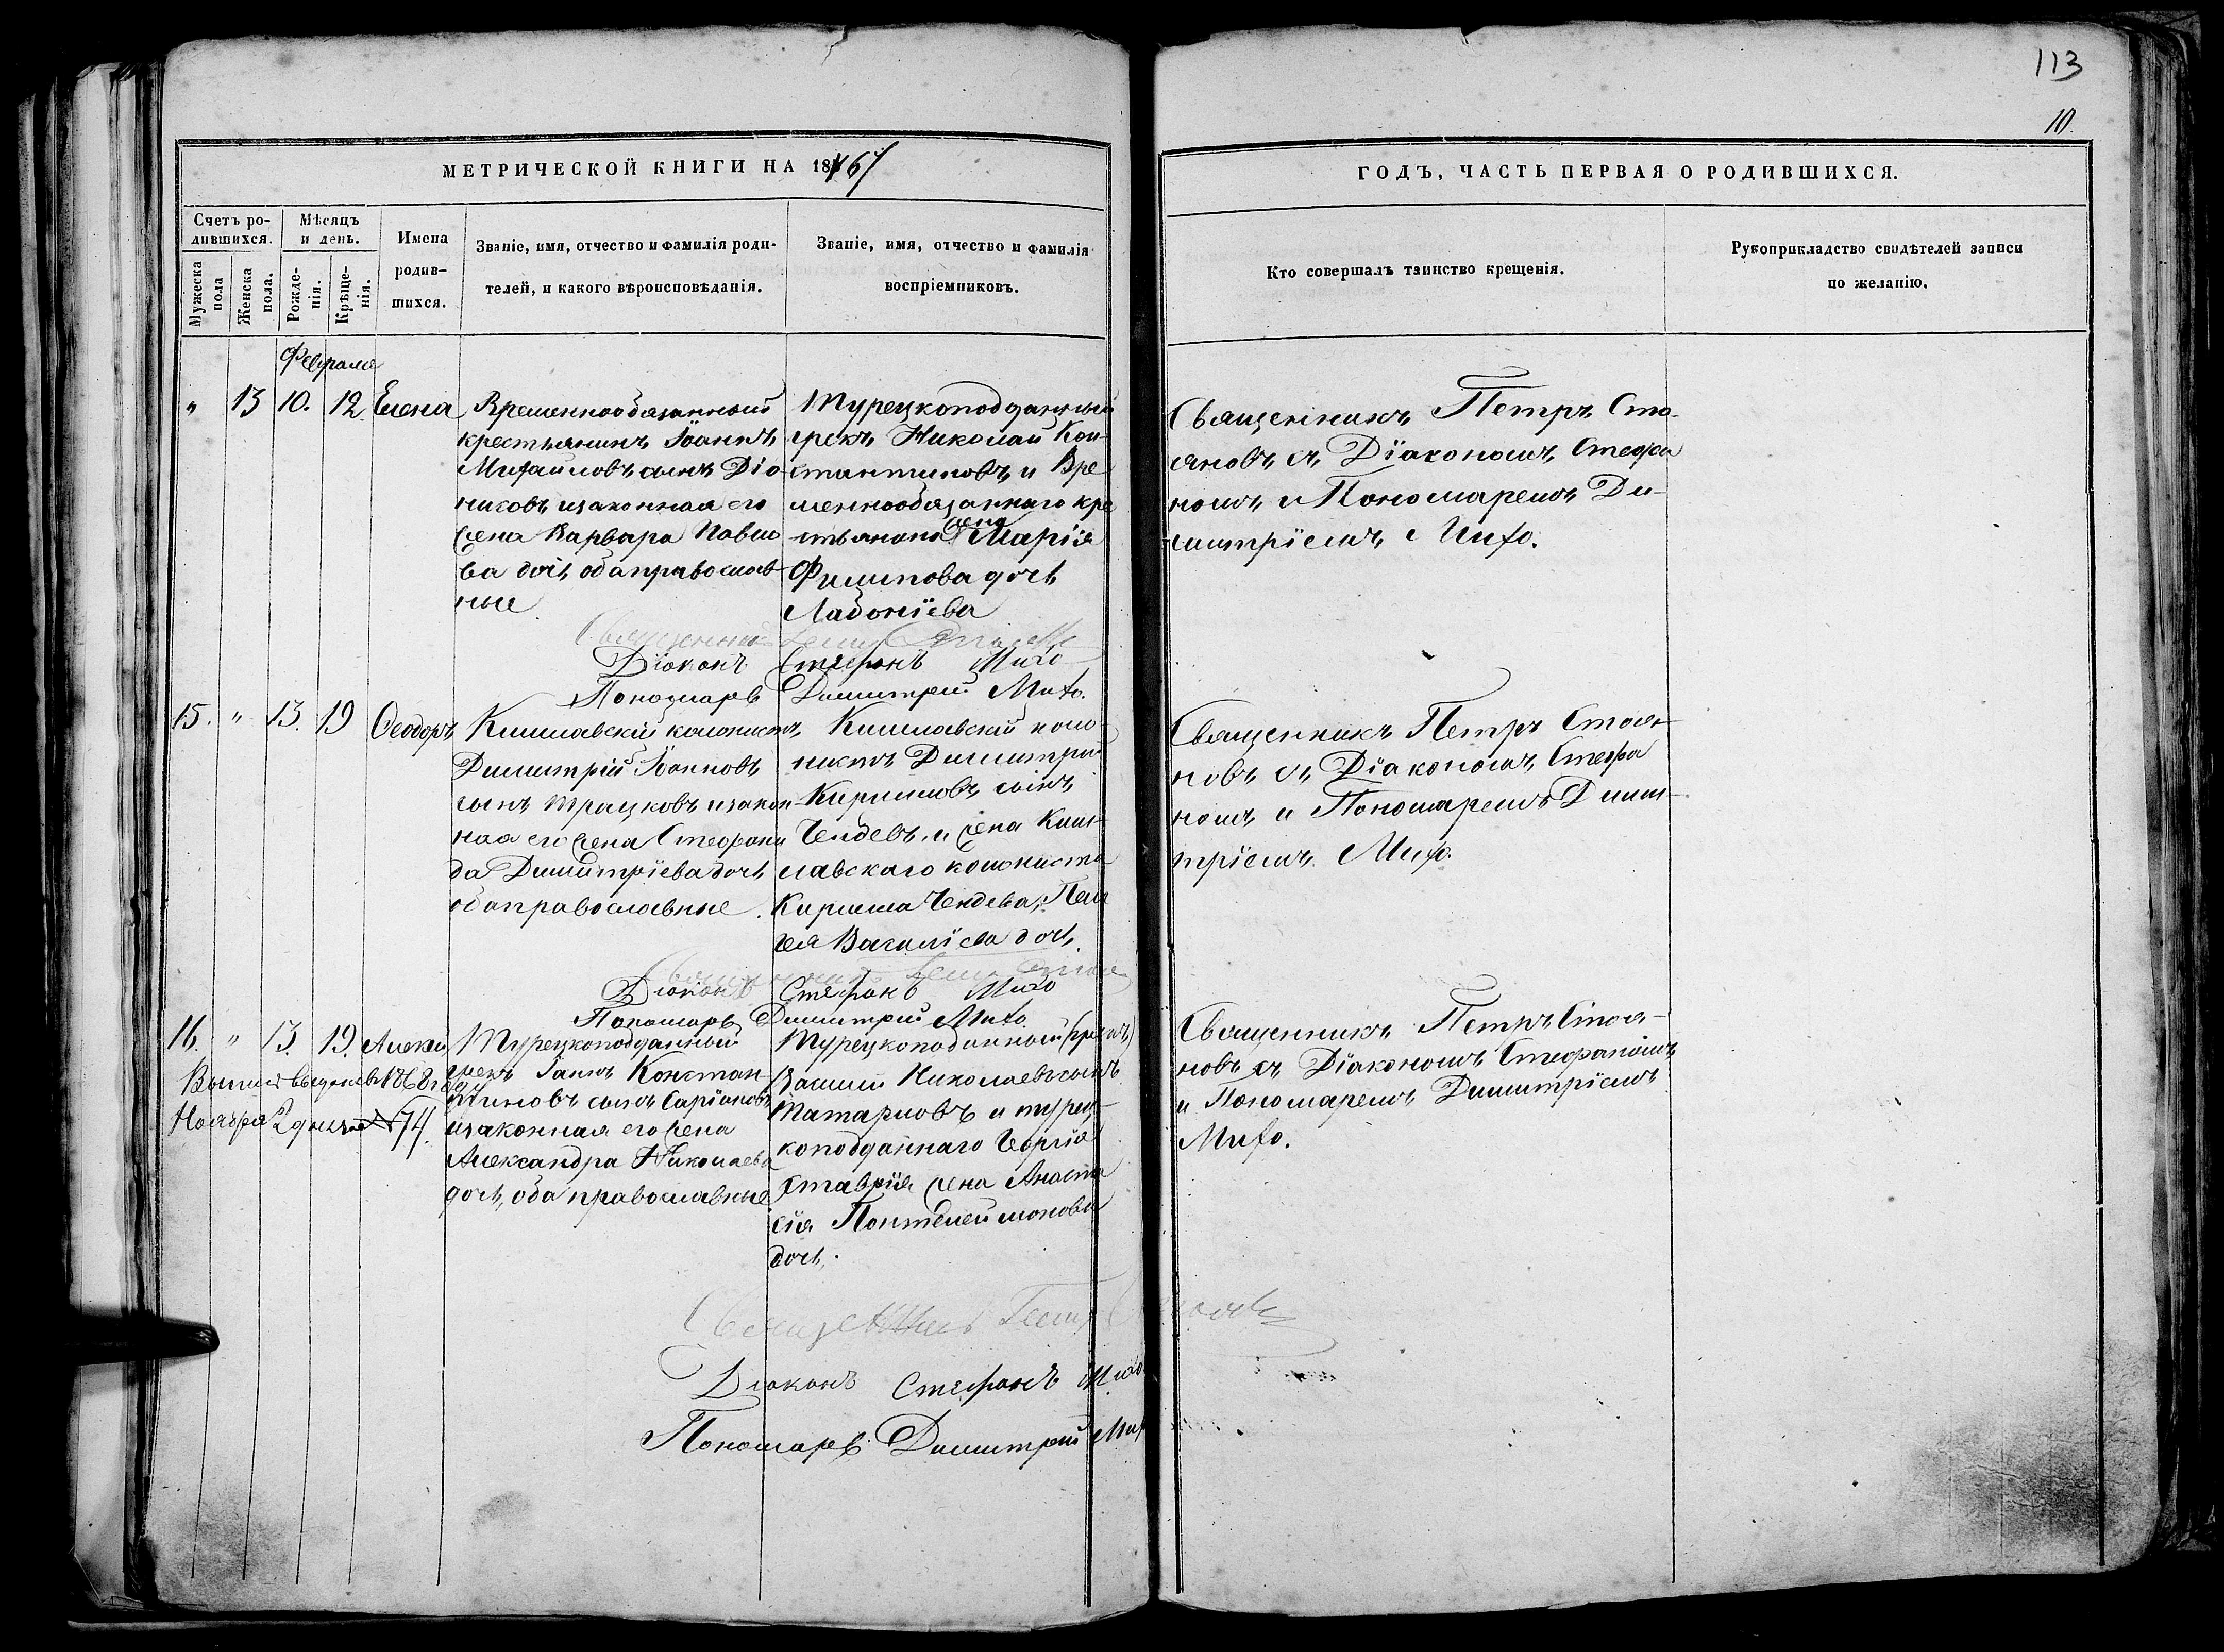 113
10.
МЕТРИЧЕСКОЙ КНИГИ НА 1867
ГОДЪ, ЧАСТЬ ПЕРВАЯ О РОДИВШИХСЯ.
Счетъ ро-
дившихся.
Мужеска
пола
Женска
пола.
Мѣсяцъ
и день.
Рожде-
нія.
Крѣще-
нія.
Имена
родив-
шихся.
Званіе, имя, отчество и фамилія роди-
телей, и какого вѣроисповѣданія.
Званіе, имя, отчество и фамилія
воспріемниковъ.
Кто совершалъ таинство крещенія.
Рукоприкладство свидѣтелей записи
по желанію.
Февраля
" 13 10. 12 Елена
Временнообязанный
крестьянинъ Іоаннъ
Михаиловъ сынъ Діо
нисовъ изаконная его
жена Варвара Павло
ва дочь оба православ
ные
Турецкоподданный
грекъ Николай Кон-
стантиновъ и Вре
меннообязаннаго кре
стьянина жена Марія
Филипова дочь
Ладонїева
Священникъ Петръ Сто-
яновъ съ Діакономъ Стефа
номъ и Пономаремъ Ди-
митріемъ Михо.
Діаконъ Стефанъ Михо
Пономарь Димитрей Михо.
15. " 13. 19 Ѳеодоръ
Кишлавскій колонистъ
Димитрій Іоанновъ
сынъ Трацковъ изакон
ная его жена Стефани
да Димитріева дочь
оба православные.
Кишлавскій коло-
нистъ Димитрій
Кирилловъ сынъ
Чендевъ и жена Киш-
лавскаго колониста
Кирилла Чендева, Пела
гея Василіева дочь
Священникъ Петръ Стоя-
новъ съ Діакономъ Стефа
номъ и Пономаремъ Дими-
тріемъ Михо.
Діаконъ Стефанъ Михо
Пономарь Димитрей Михо
16. " 13. 19. Алексѣй
1868
Ноября 2 дня за № 74.
Турецкоподданный
грекъ Іоаннъ Констан
тиновъ сынъ Саріановъ
изаконная его жена
Александра Николаева
дочь, оба православные
Турецкоподданный (грекъ)
Василій Николаевъ сынъ
Татарловъ и турец-
коподданнаго Георгія
Ставрія жена Анаста
сія Пантелеймонова
дочь.
Священникъ Петръ Стоя-
новъ съ Діакономъ Стефаномъ
и Пономаремъ Димитріемъ
Михо.
Священникъ Петръ Стояновъ
Діаконъ Стефанъ Михо
Пономарь Димитрей Михо